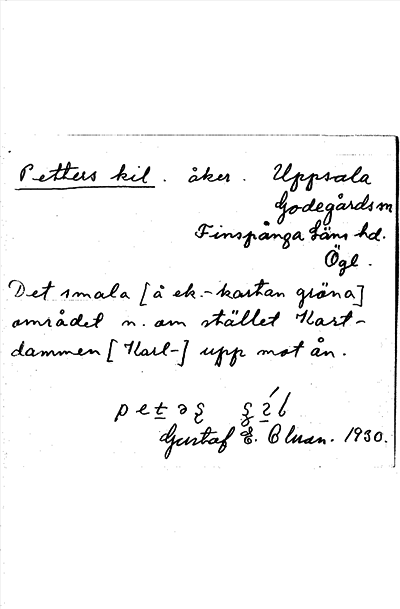 Petters kil. åker. Uppsala
Godegårds sn
Finspånga Läns hd.
Ögl.
Det smala [å ek.-kartan gröna]
området n. om stället Kart-
dammen [Karl-] upp mot ån.
Gustaf E. Bluan. 1930.